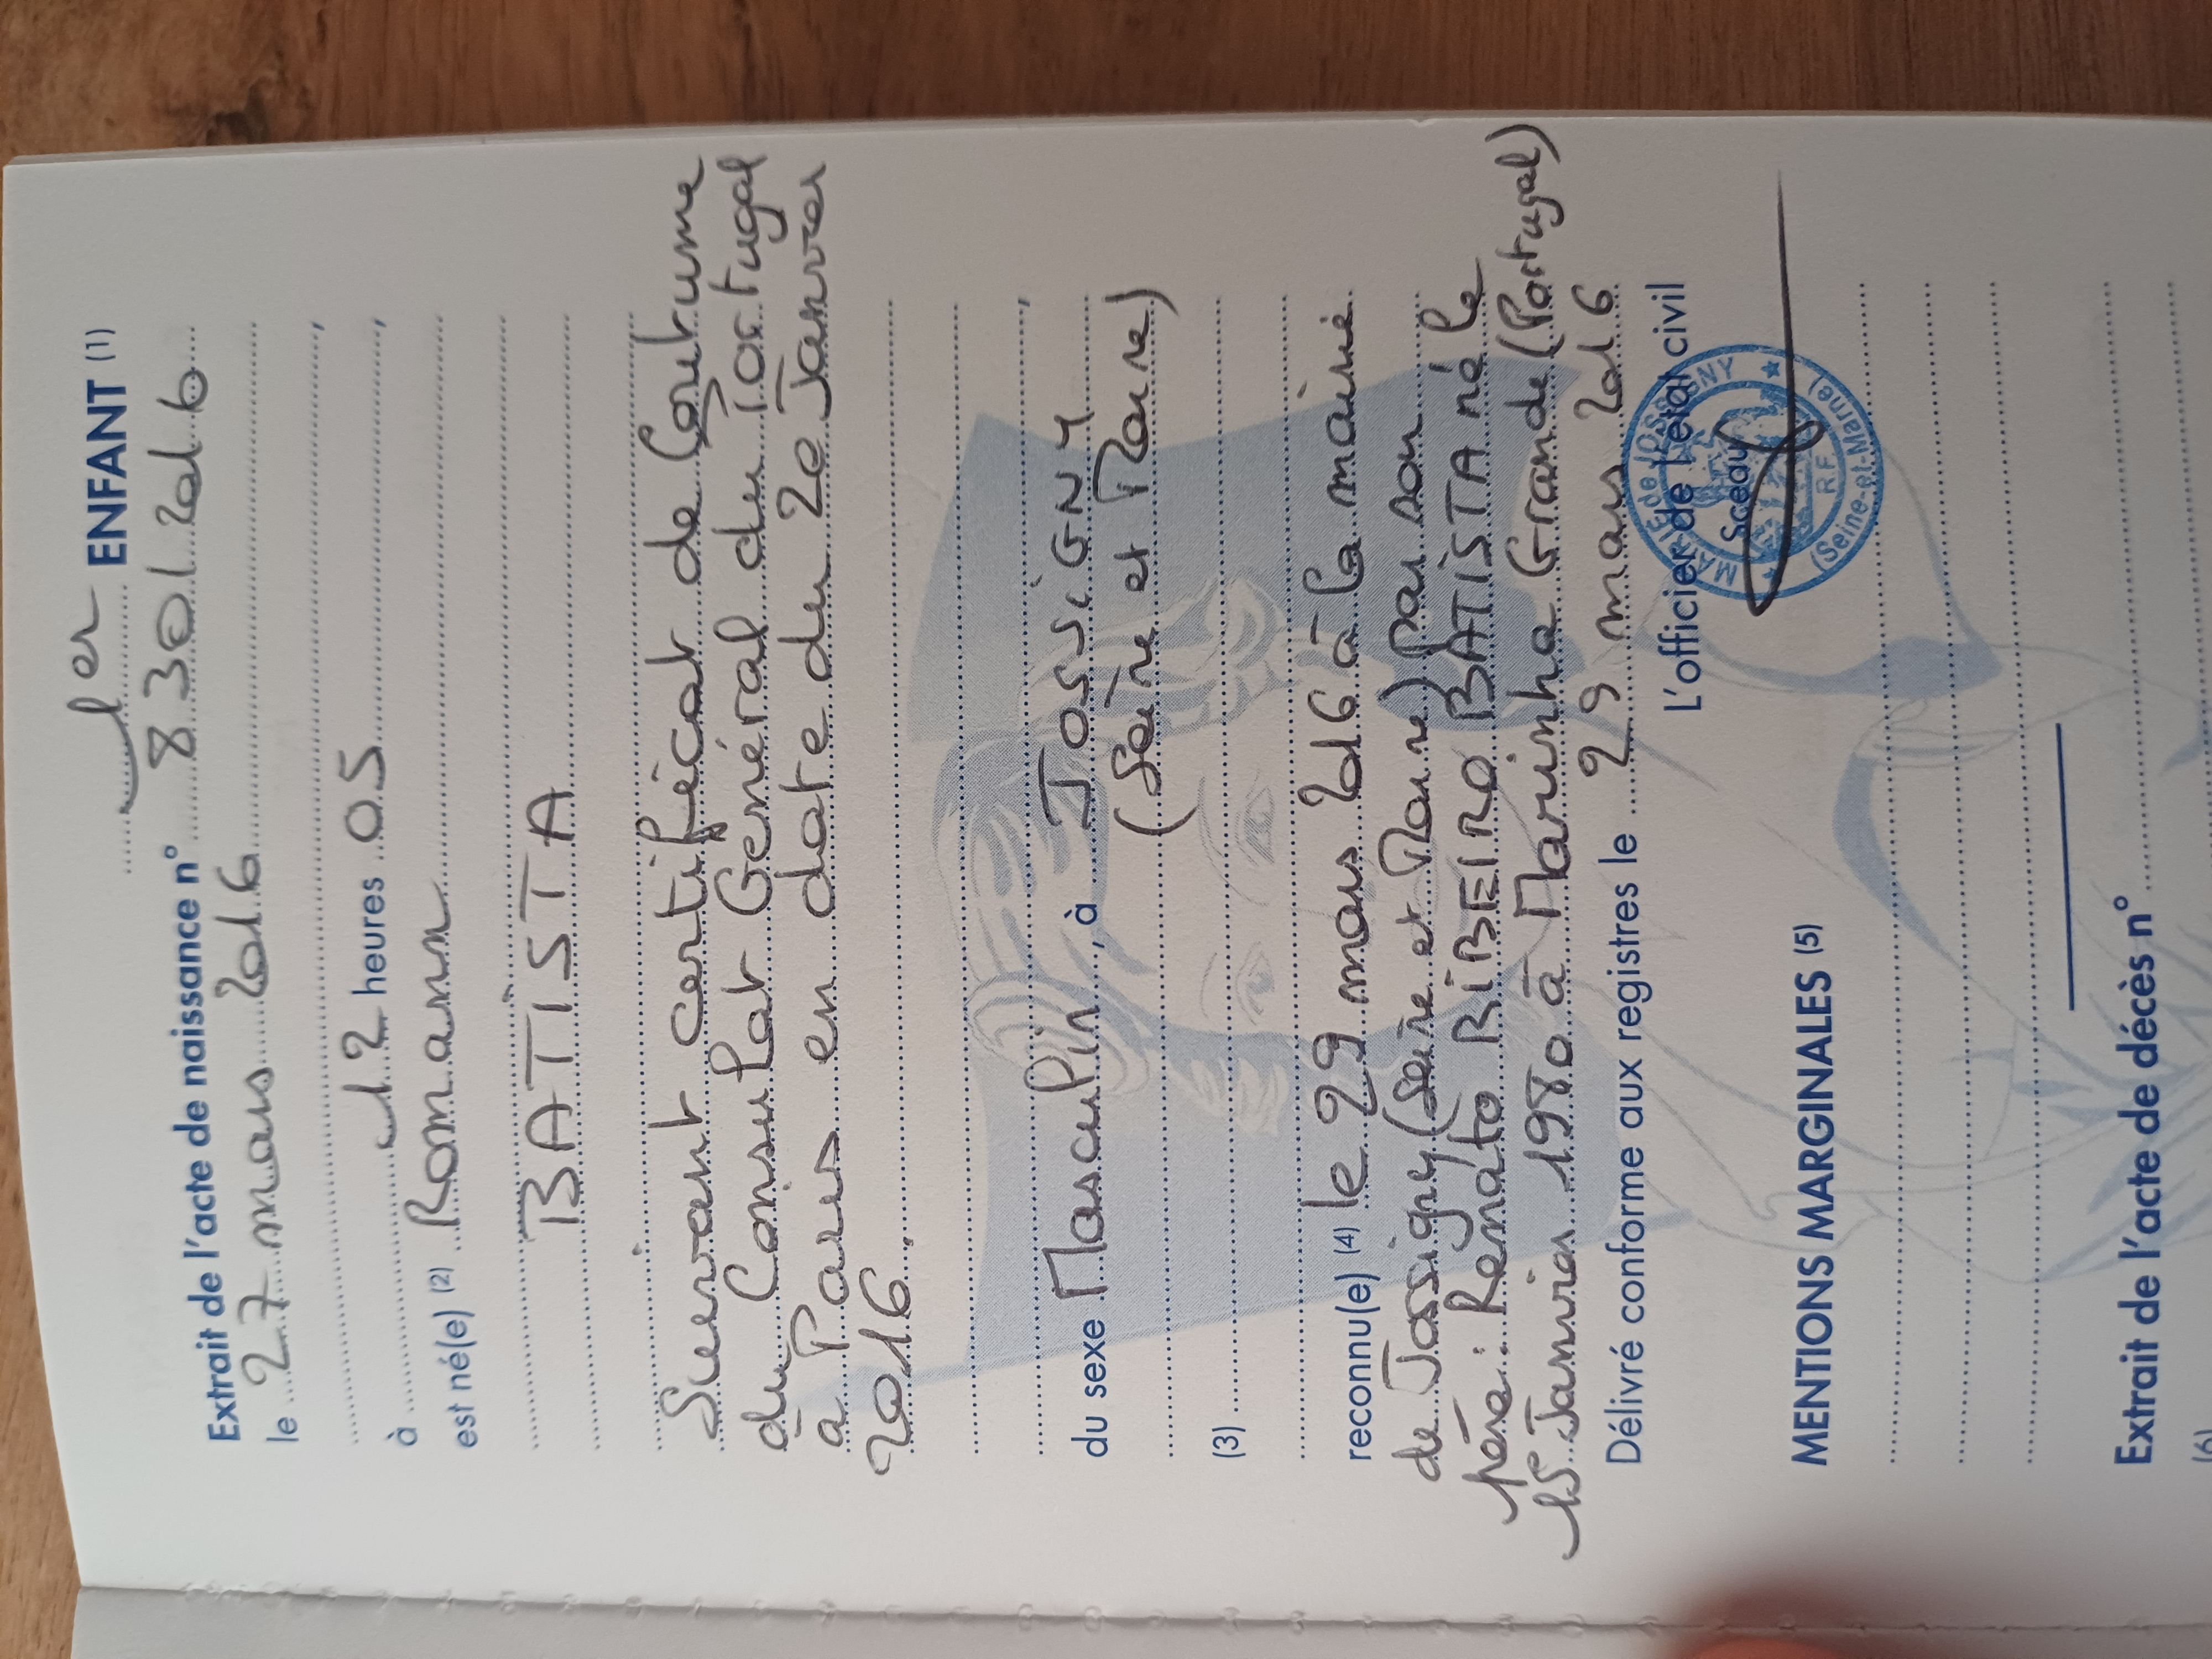 1er ENFANT (1)
Extrait de l'acte de naissance n° 830/2016
le 27 mars 2016
,
à 12 heures 05 ,
est né(e) (2) Romann
BATISTA
Suivant certificat de Coutume
du Consulat Général du Portugal
à Paris en date du 20 Janvier
2016.
,
du sexe Masculin, à JOSSIGNY
(Seine et Marne)
(3)
reconnu(e) (4) le 29 mars 2016 à la mairie
de Jossigny (Seine et Marne) par son
père : Renato RIBEIRO BATISTA né le
15 Janvier 1980 à Marinha Grande (Portugal)
Délivré conforme aux registres le 29 mars 2016
L'officier de l'état civil
MAIRIE de JOSSIGNY
Sceau
R.F.
(Seine-et-Marne)
MENTIONS MARGINALES (5)
Extrait de l'acte de décès n°
(6)